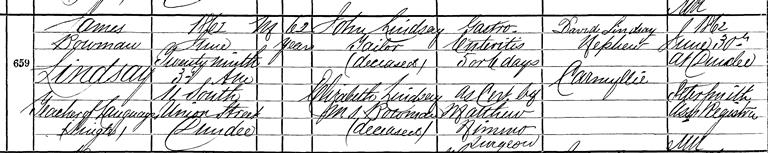 James
Bowman
Lindsay
Teacher of Languages
(Single)
659
1862
June
Twenty ninth
3h
11 South
Union Street
Dundee
M
62
years
John Lindsay
Tailor
(deceased)
Elizabeth Lindsay
m.s. Bowman
(deceased)
Gastro-
Enteritis
5 or 6 days
As Cert. by
Matthew
Nimmo
Surgeon
David Lindsay
Nephew
Carmyllie
1862
June 30th
at Dundee
Registrar